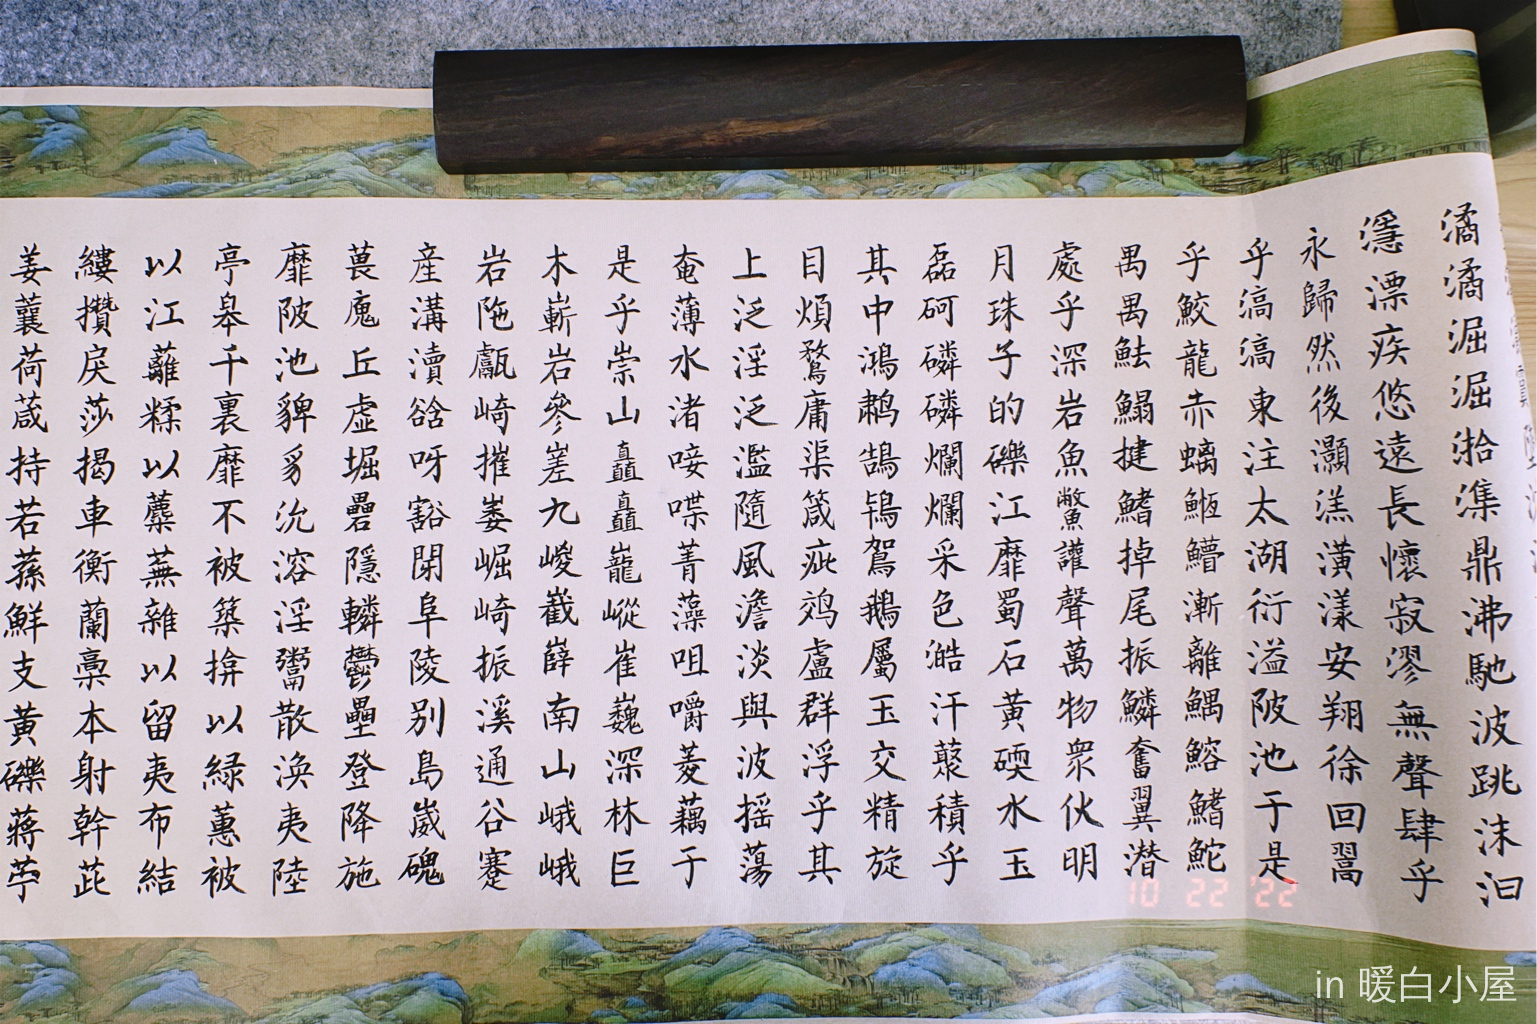 潏潏淈淈湁潗鼎沸馳波跳沫汩
濦漂疾悠遠長懷寂漻無聲肆乎
永歸然後灝溔潢漾安翔徐回翯
乎滈滈東注太湖衍溢陂池于是
乎鮫龍赤螭䱍䲛漸離鰅鰫鰭鮀
禺禺魼鰨揵鰭掉尾振鱗奮翼潛
處乎深岩魚鱉讙聲萬物衆伙明
月珠子的礫江靡蜀石黃碝水玉
磊砢磷磷爛爛采色澔汗藂積乎
其中鴻鷫鵠鴇鴐鵝屬玉交精旋
目煩鶩庸渠箴疵鵁盧群浮乎其
上泛淫泛濫隨風澹淡與波摇蕩
奄薄水渚唼喋菁藻咀嚼菱藕于
是乎崇山矗矗巃嵸崔巍深林巨
木嶄岩參嵳九嵕嶻嶭南山峨峨
岩陁甗崎摧崣崛崎振溪通谷蹇
産溝瀆谽呀豁閉阜陵别島崴磈
葨廆丘虚堀礨隱轔鬱壘登降施
靡陂池貏豸沇溶淫鬻散涣夷陸
亭皋千裏靡不被築揜以緑蕙被
以江蘺糅以蘪蕪雜以留夷布結
縷攢戾莎揭車衡蘭槀本射幹茈
姜蘘荷葴持若蓀鮮支黃礫蔣苧
10 22 '22
in 暖白小屋